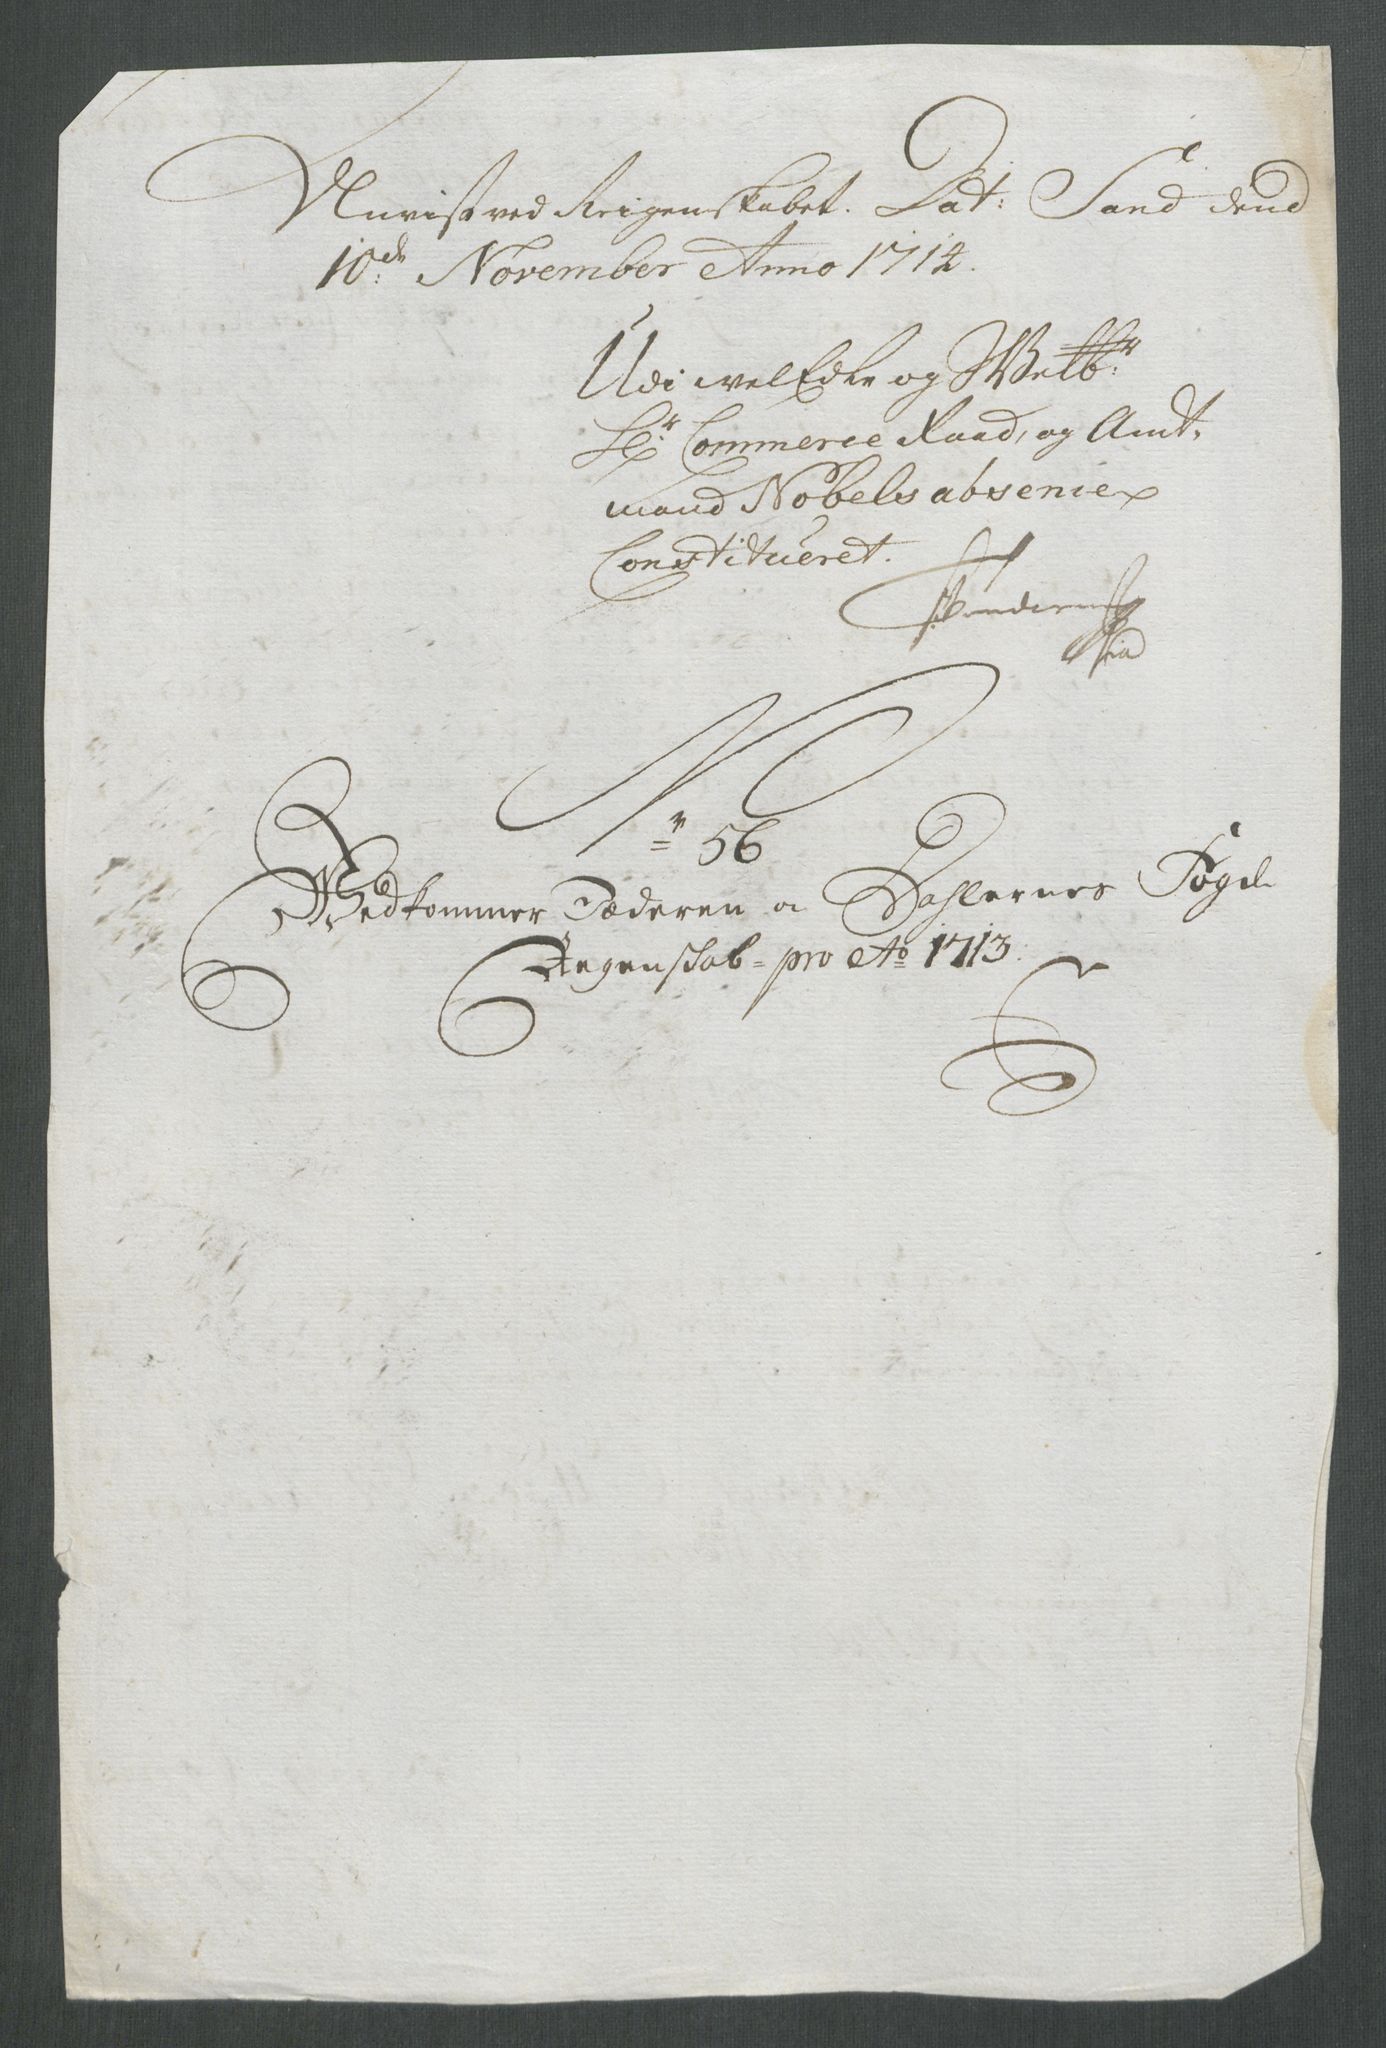 Anvist ved Reigenskabet. Dat: Sand dend
10de: November Anno 1714.
Udi welEdle og Welb:r
Hr: Commerce Raad, og Amt,
mand Nobels absence
Constitueret.
Nr 56
Vedkommer Jæderen a Dahlernes Fogd.
Regenskab pro Ao 1713.